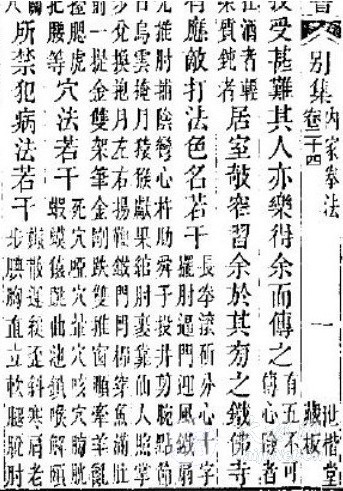 別集 內家拳法
卷二十四
一
世楷堂
藏板
受甚難其人亦樂得余而傳之
有五不可
傳心險者
狂酒者輕
柔質鈍者
居室欹窄習余於其旁之鐵佛寺
有應敵打法色名若干
長拳滾斫分心十字
擺肘逼門迎風鐵扇
推肘捕陰彎心杵肋舜子投井剪腕點節
日烏雲掩月猿猴獻果綰肘裹靠仙人照掌
步兌換抱月左右揚鞭鐵門閂柳穿魚滿肚
箭一提金雙架筆金剛跌雙推窗順牽羊亂
腮虎
把腰等
穴法若干
死穴啞穴暈穴咳穴膀胱
蝦蟆猿跳曲池鎖喉解頤
所禁犯病法若干
懶散遲緩歪斜寒肩老
步腆胸直立軟腿脫肘